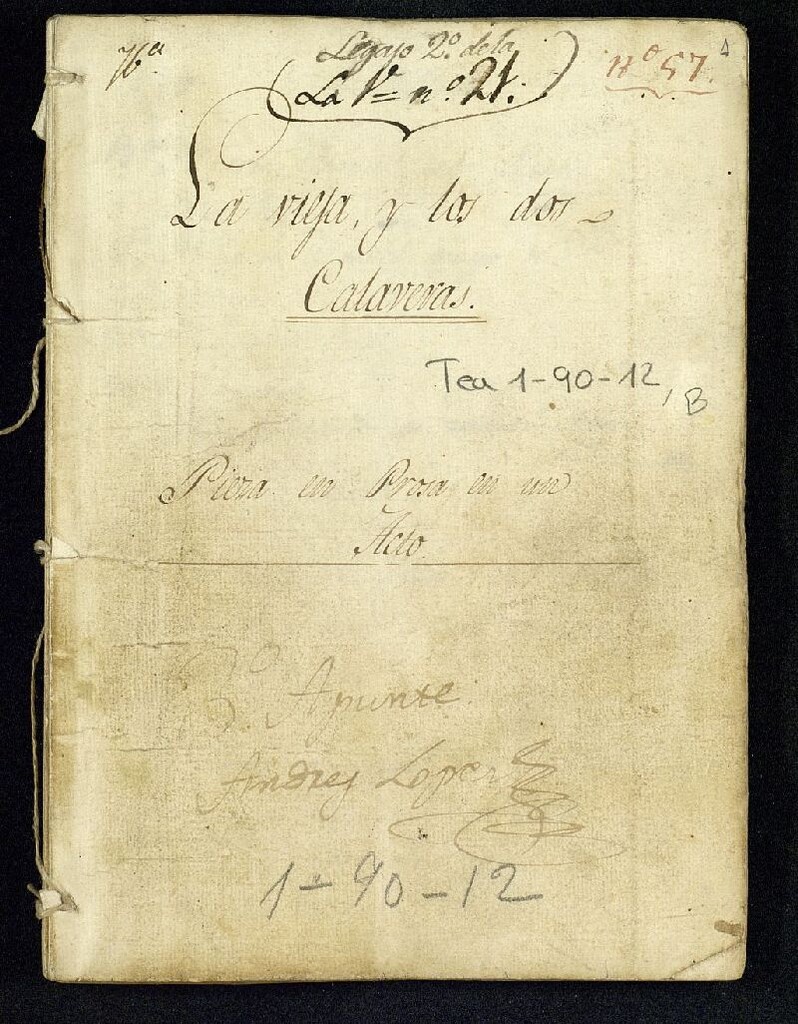 Legajo 2º de la
La 1ª = nº 21.
Nº 57.
La vieja, y los dos
Calaveras.
Tea 1-90-12, B
Pieza en Prosa en un
Acto.
3º Apunte
Andres Lopez
1-90-12